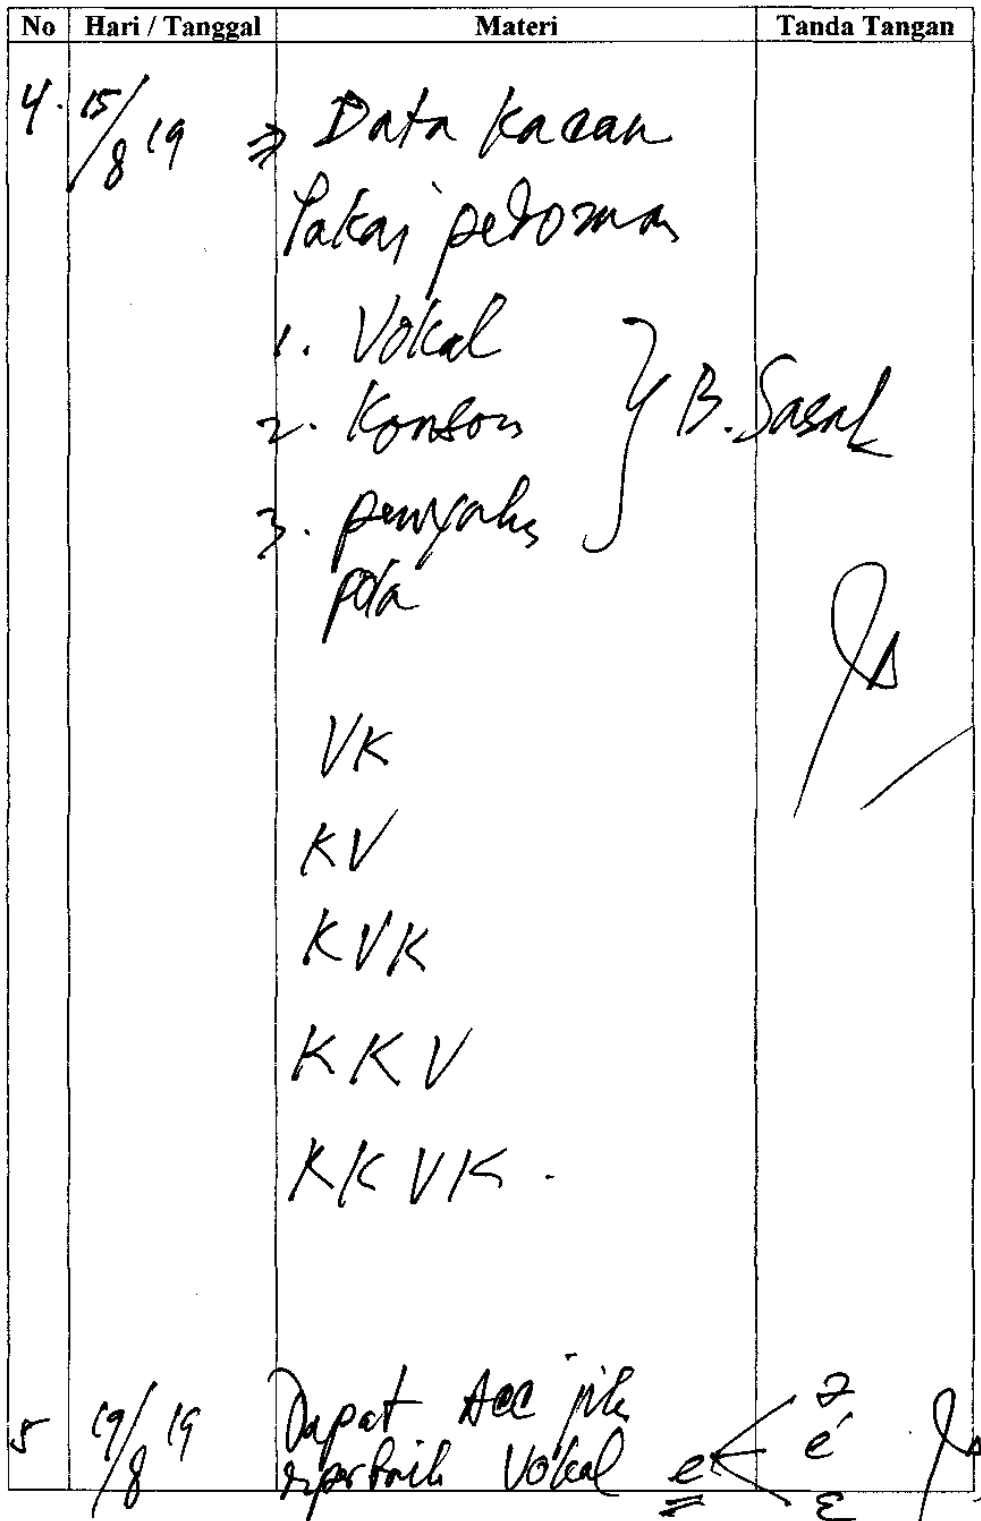 No Hari / Tanggal Materi Tanda Tangan
4. 15/8 19 ⇒ Data kacau
Pakai pedoman
1. Vokal
2. Konson
3. penyalis
} B. Sasak
pola
VK
KV
KVK
KKV
KKVK.
5 19/8 19 Dapat Acc jika
diperbaik Vokal e < ə é ɛ